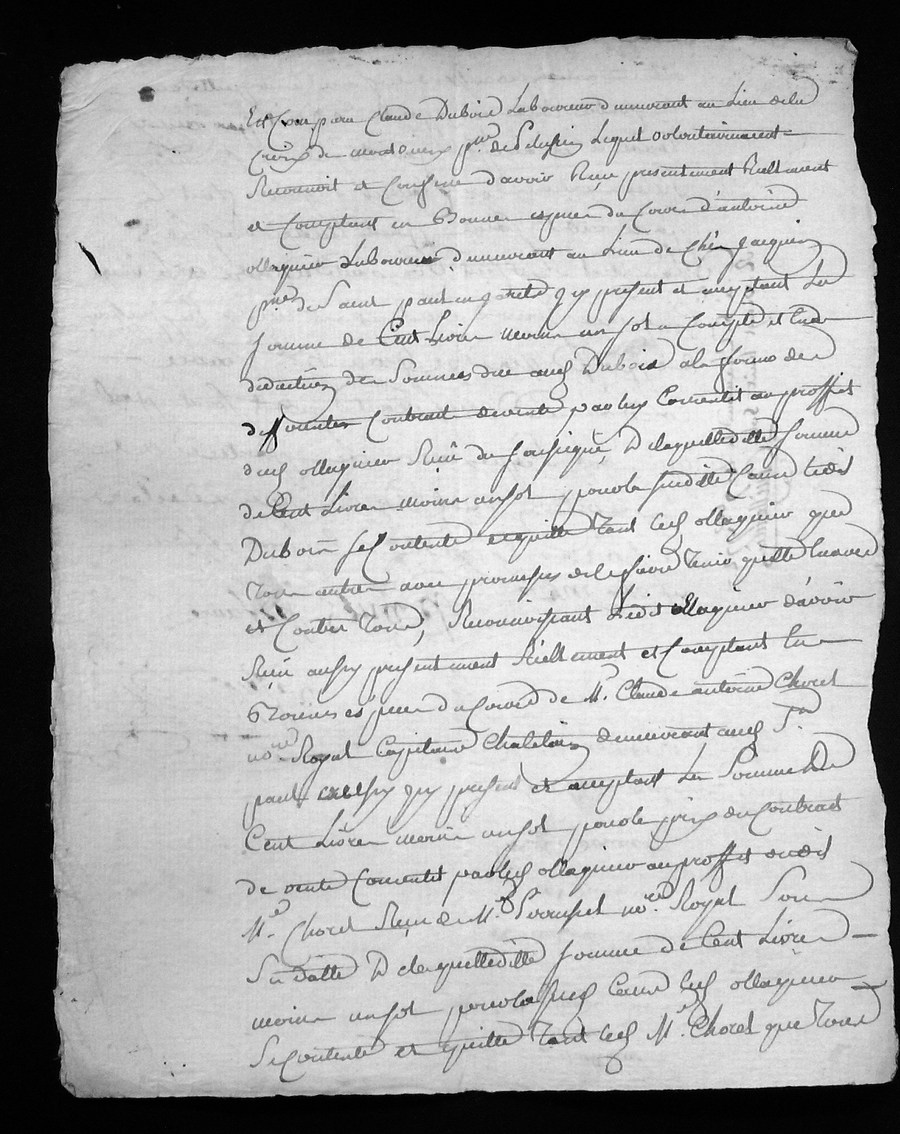 Est Comparu Claude Dubois Laboureur demeurant au Lieu de la
Croix de montvieux psse de Pelussin Lequel volontairement
Reconnoit et Confesse d'avoir Reçu presentement Reellement
et Comptant en Bonnes especes du Cours d'antoine
ollagnier Laboureur demeurant au Lieu de Chez Jacquet
psse de Saint paul en Jarest icy present et acceptant La
somme de Cent Livres moins un sol a Compte et en
deduction des Sommes dues aud Dubois a la forme de
Contract de vente par luy Consentit au proffit
dud ollagnier Reçu du soussigné, De laquelle ditte somme
de Cent Livres moins un sol pour la susditte Cause Ledit
Dubois se Contente et quitte tant led ollagnier que
tous autres avec promesses de le faire tenir quitte Envers
et Contre tous, Reconnoissant Ledit ollagnier d'avoir
Reçu aussy presentement Reellement et Comptant En
Bonnes especes du Cours de Me Claude antoine Choret
nore Royal Capitaine Chatelain demeurant aud St
paul aussy icy present et acceptant La Somme De
Cent Livres moins un sol pour le prix du Contract
de vente Consentit par led ollagnier au proffit dudit
Me Choret Reçu de Me nore Royal Sous
Sa datte De laquelle ditte somme de Cent Livres
moins un sol pour la susd Cause led ollagnier
se Contente et quitte tant led Me Choret que tous